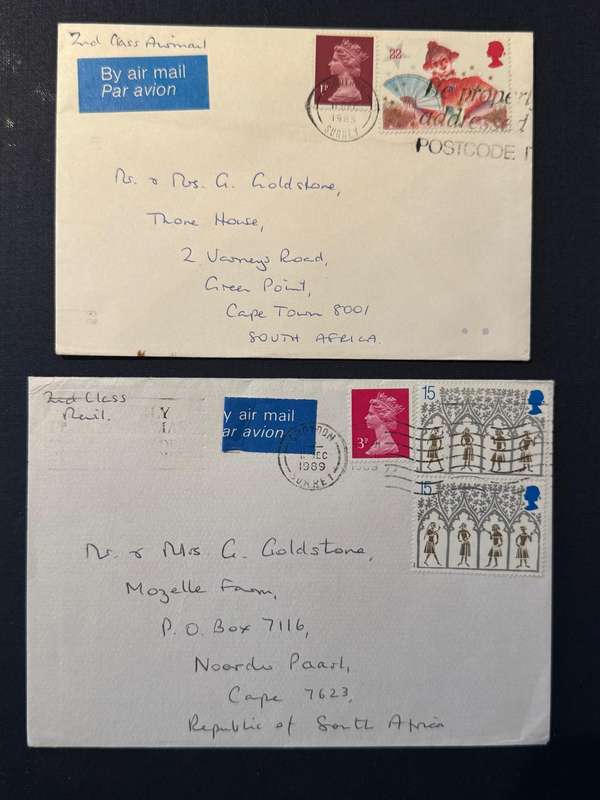 2nd Class Airmail
By air mail
Par avion
1P
22
1985
SURREY
be properly
addressed
POSTCODE I
Mr. & Mrs. G. Goldstone,
Thone House,
2 Varneys Road,
Green Point,
Cape Town 8001
SOUTH AFRICA.
2nd Class
Mail.
y air mail
ar avion
3P
15
15
CROYDON
DEC
1989
SURREY
Mr. & Mrs. G. Goldstone,
Mozelle Farm,
P. O. Box 7116,
Noorder Paarl,
Cape 7623,
Republic of South Africa